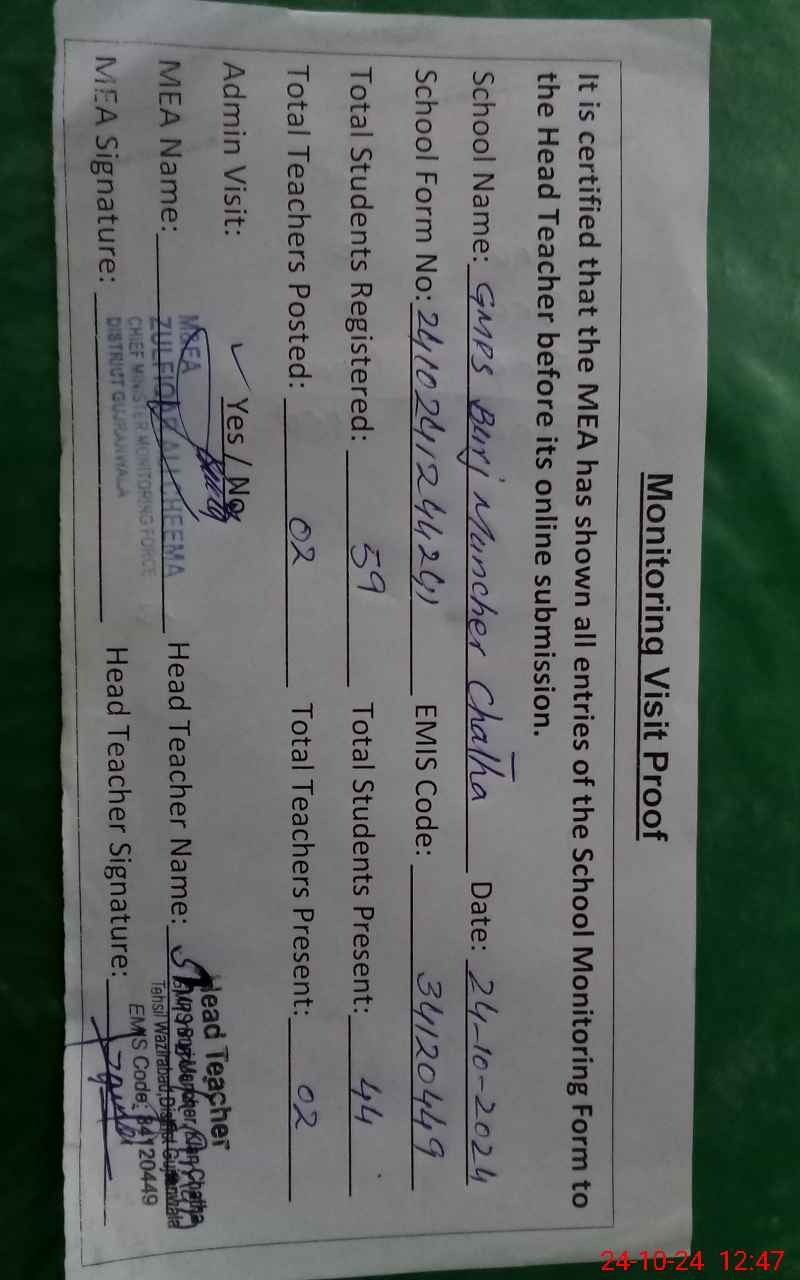 Monitoring Visit Proof
It is certified that the MEA has shown all entries of the School Monitoring Form to
the Head Teacher before its online submission.
School Name: GMPS Burj Muncher Chatha Date: 24-10-2024
School Form No: EMIS Code: 34120449
Total Students Registered: 59 Total Students Present: 44
Total Teachers Posted: 02 Total Teachers Present: 02
Admin Visit: ✓ Yes / No
MEA Name: Head Teacher Name:
MEA
ZULFIQAR ALI CHEEMA
CHIEF MINISTER MONITORING FORCE
DISTRICT GUJRANWALA
Head Teacher
Tehsil Wazirabad, District Gujranwala
EMIS Code: 34120449
MEA Signature: Head Teacher Signature:
24-10-24 12:47